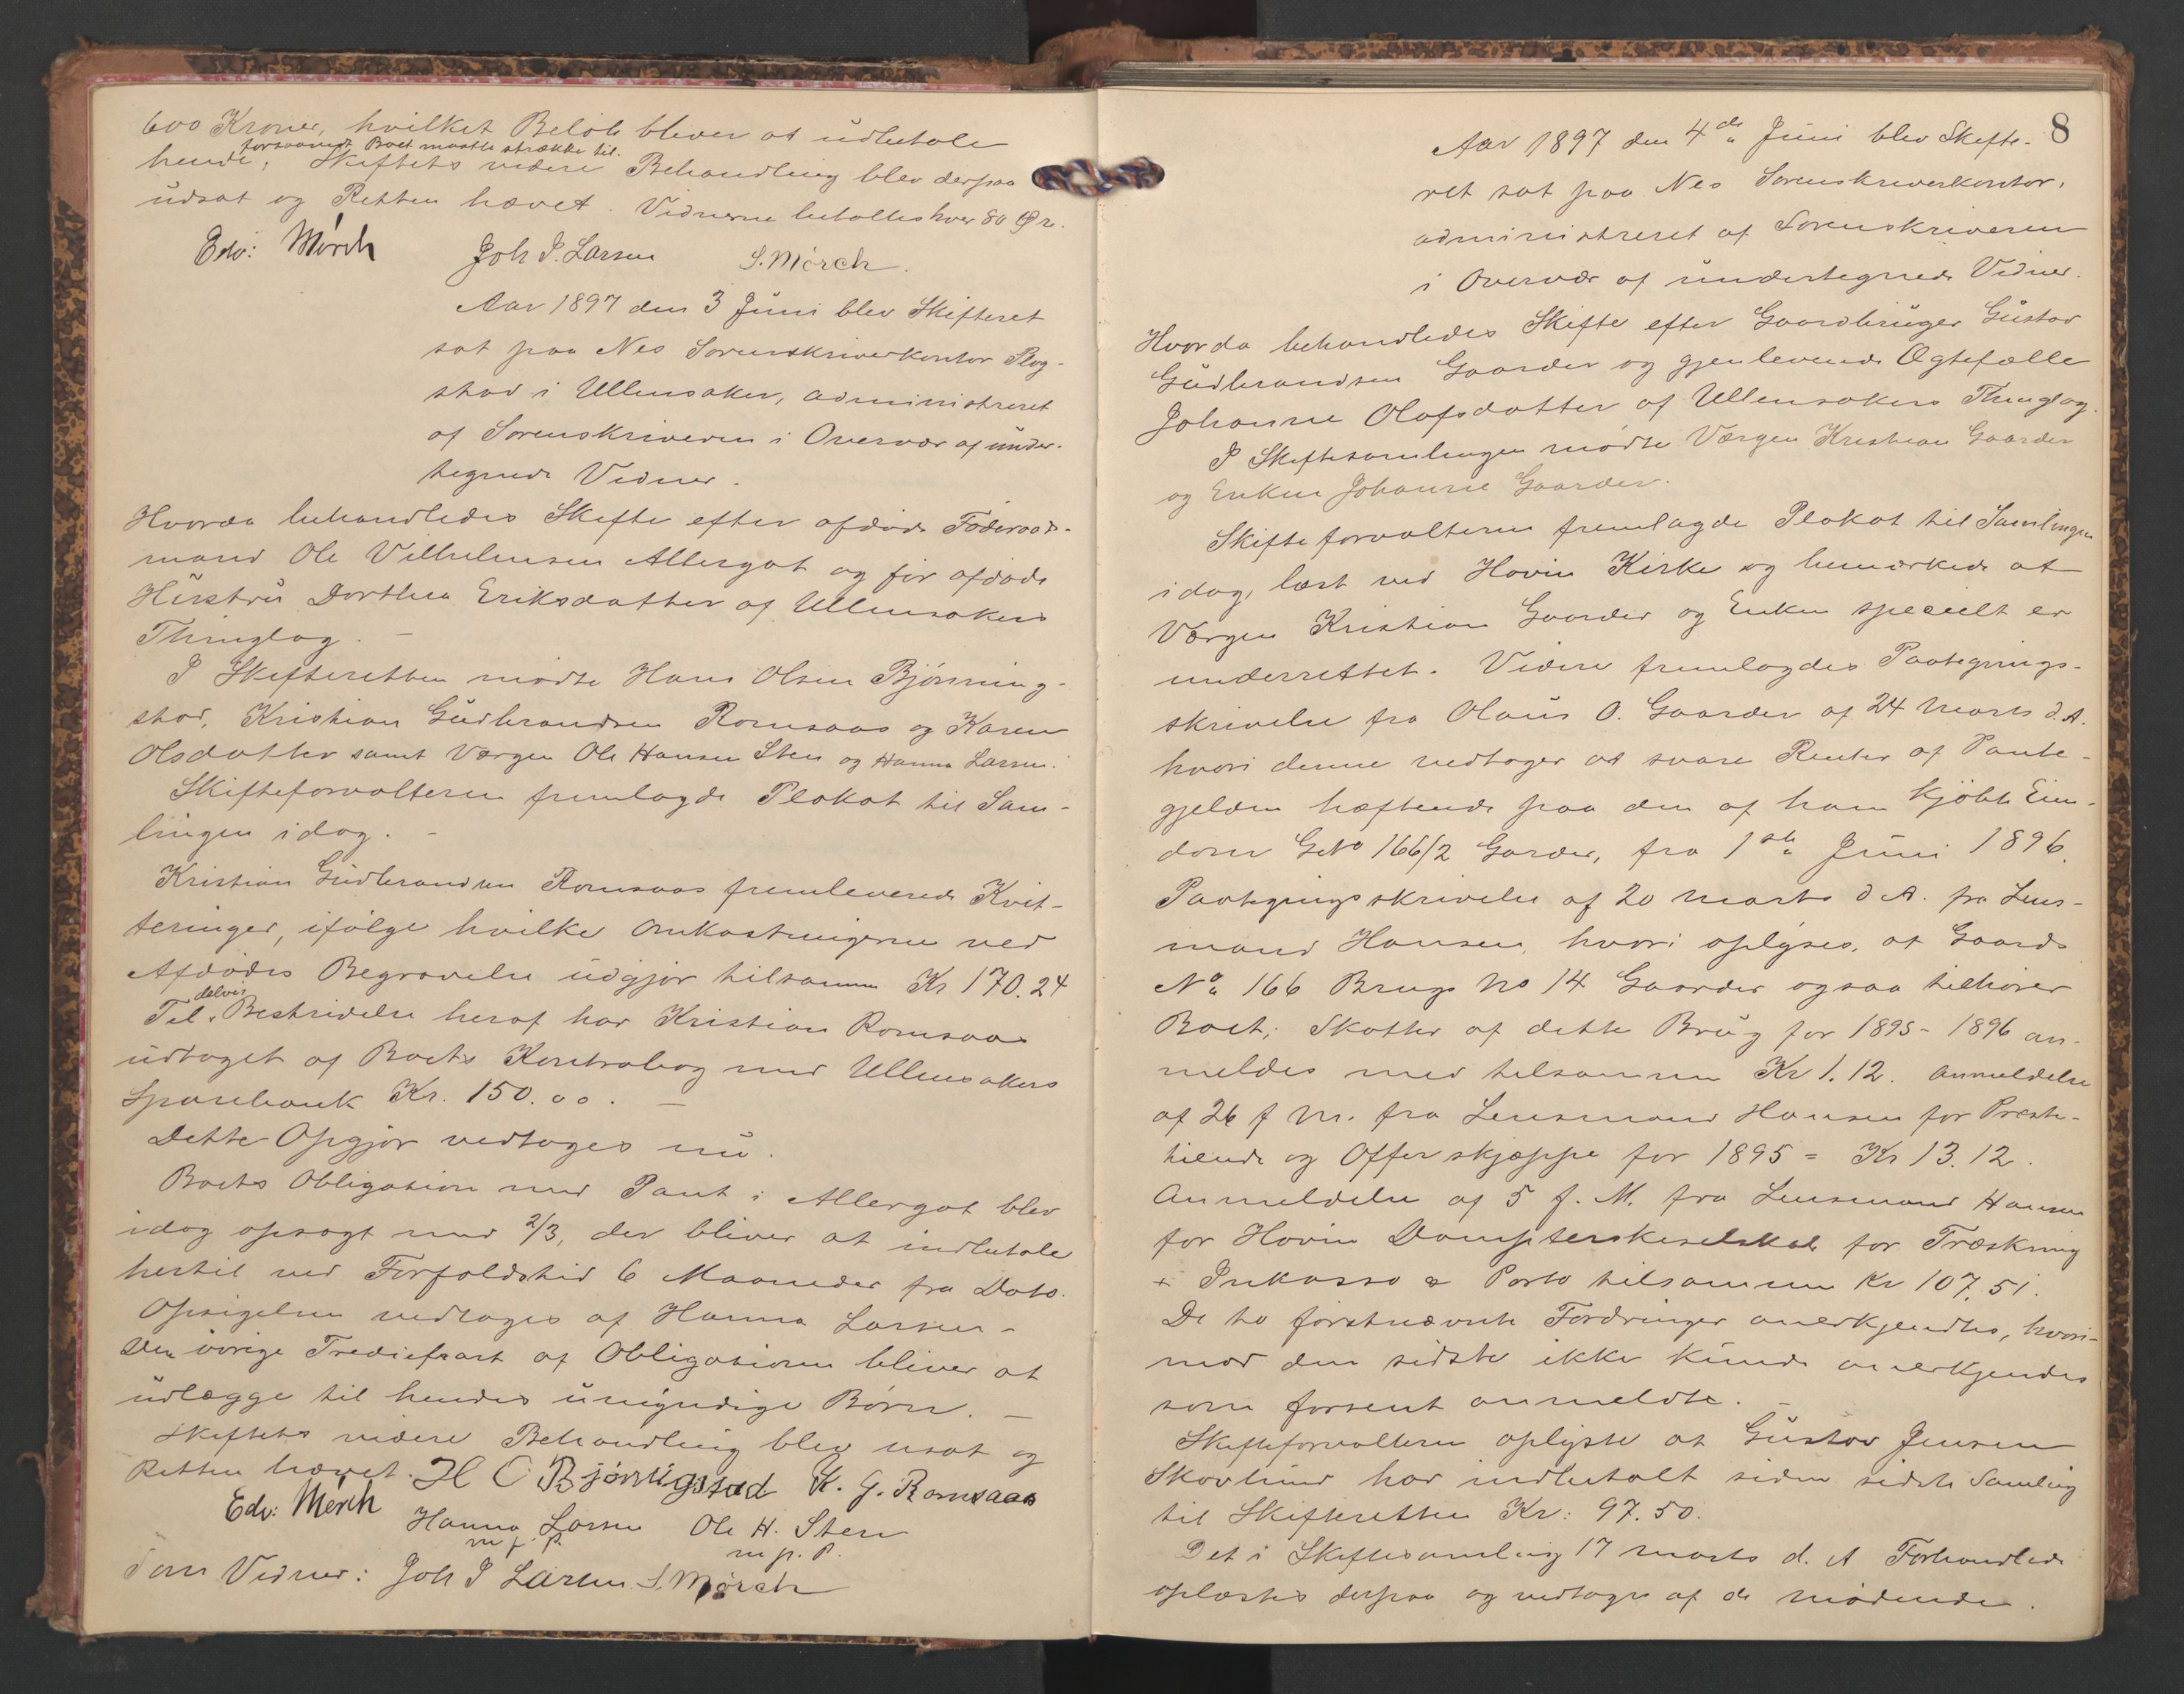 600 Kroner, hvilket Beløb bliver at udbetale
forsaavidt Boet maatte strække til.
hende, Skiftets videre Behandling blev derpaa
udsat og Retten hævet. Vidnerne betaltes hver 80 Øre.
Edv: Mørch Joh J. Larsen S. Mørch.
Aar 1897 den 3 Juni blev Skifteret
sat paa Nes Sorenskriverkontor Plog-
stad i Ullensaker, administreret
af Sorenskriveren i Overvær af under-
tegnede Vidner.
Hvorda behandledes Skifte efter afdøde Føderaads-
mand Ole Vilhelmsen Allergot og før afdøde
Hustru Dorthea Eriksdatter af Ullensakers
Thinglag. —
I Skifteretten mødte Hans Olsen Bjørning-
stad, Kristian Gudbrandsen Romsaas og Karen
Olsdatter samt Værgen Ole Hansen Sten og Hanna Larsen.
Skifteforvalteren fremlagde Plakat til Sam-
lingen idag. —
Kristian Gudbrandsen Romsaas fremleverede Kvit-
teringer, ifølge hvilke Omkostningerne ved
Afdødes Begravelse udgjør tilsammen Kr 170.24
delvis
Til Bestridelse heraf har Kristian Romsaas
udtaget af Boets Kontrabog med Ullensakers
Sparebank Kr. 150.00. —
Dette Opgjør vedtoges nu.
Boets Obligation med Pant i Allergot blev
idag opsagt med 2/3, der bliver at indbetale
hertil ved Forfaldstid 6 Maaneder fra Dato.
Opsigelsen vedtoges af Hanna Larsen –
Den øvrige Trediepart af Obligationen bliver at
udlægge til hendes umyndige Børn. —
Skiftets videre Behandling blev usat og
Retten hævet. H O Bjørnigstad K. G. Romsaas
Edv: Mørch Hanna Larsen Ole H. Sten
m. p. P. m. p. P.
Som Vidner: Joh J Larsen S. Mørch
8
Aar 1897 den 4de Juni blev Skifte-
ret sat paa Nes Sorenskriverkontor,
administreret af Sorenskriveren
i Overvær af undertegnede Vidner.
Hvorda behandledes Skifte efter Gaardbruger Gustav
Gudbrandsen Gaarder og gjenlevende Ægtefælle
Johanne Olafsdatter af Ullensakers Thinglag.
I Skiftesamlingen mødte Værgen Kristian Gaarder
og Enken Johanne Gaarder.
Skifteforvalteren fremlagde Plakat til Samlingen
idag, læst ved Hovin Kirke og bemærkede at
Værgen Kristian Gaarder og Enken specielt er
underrettet. Videre fremlagdes Paategnings-
skrivelse fra Olaus O. Gaarder af 24 Marts d. A.
hvori denne vedtager at svare Renter af Pante-
gjelden hæftende paa den af ham kjøbte Eien-
dom GNo 166/2 Garder, fra 1ste Juni 1896.
Paategningsskrivelse af 20 Marts d A. fra Lens-
mand Hansen, hvori oplyses, at Gaards
No 166 Brugs No 14 Gaarder ogsaa tilhører
Boet; Skatter af dette Brug for 1895 - 1896 an-
meldes med tilsammen Kr 1.12. Anmeldelse
af 26 f M. fra Lensmand Hansen for Præste-
tiende og Offerskjæppe for 1895 = Kr 13.12.
Anmeldelse af 5 f. M. fra Lensmand Hansen
for Hovin Dampterskeselskab for Træskning
+ Inkasso & Porto tilsammen Kr 107.51.
De to førstnævnte Fordringer anerkjendtes, hvori-
mod den sidste ikke kunde anerkjendes
som forsent anmeldte. —
Skifteforvalteren oplyste at Gustav Jensen
Skovlund har indbetalt siden sidste Samling
til Skifteretten Kr: 97.50.
Det i Skiftesamling 17 Marts d. A Forhandlede
oplæstes derpaa og vedtoges af de mødende.